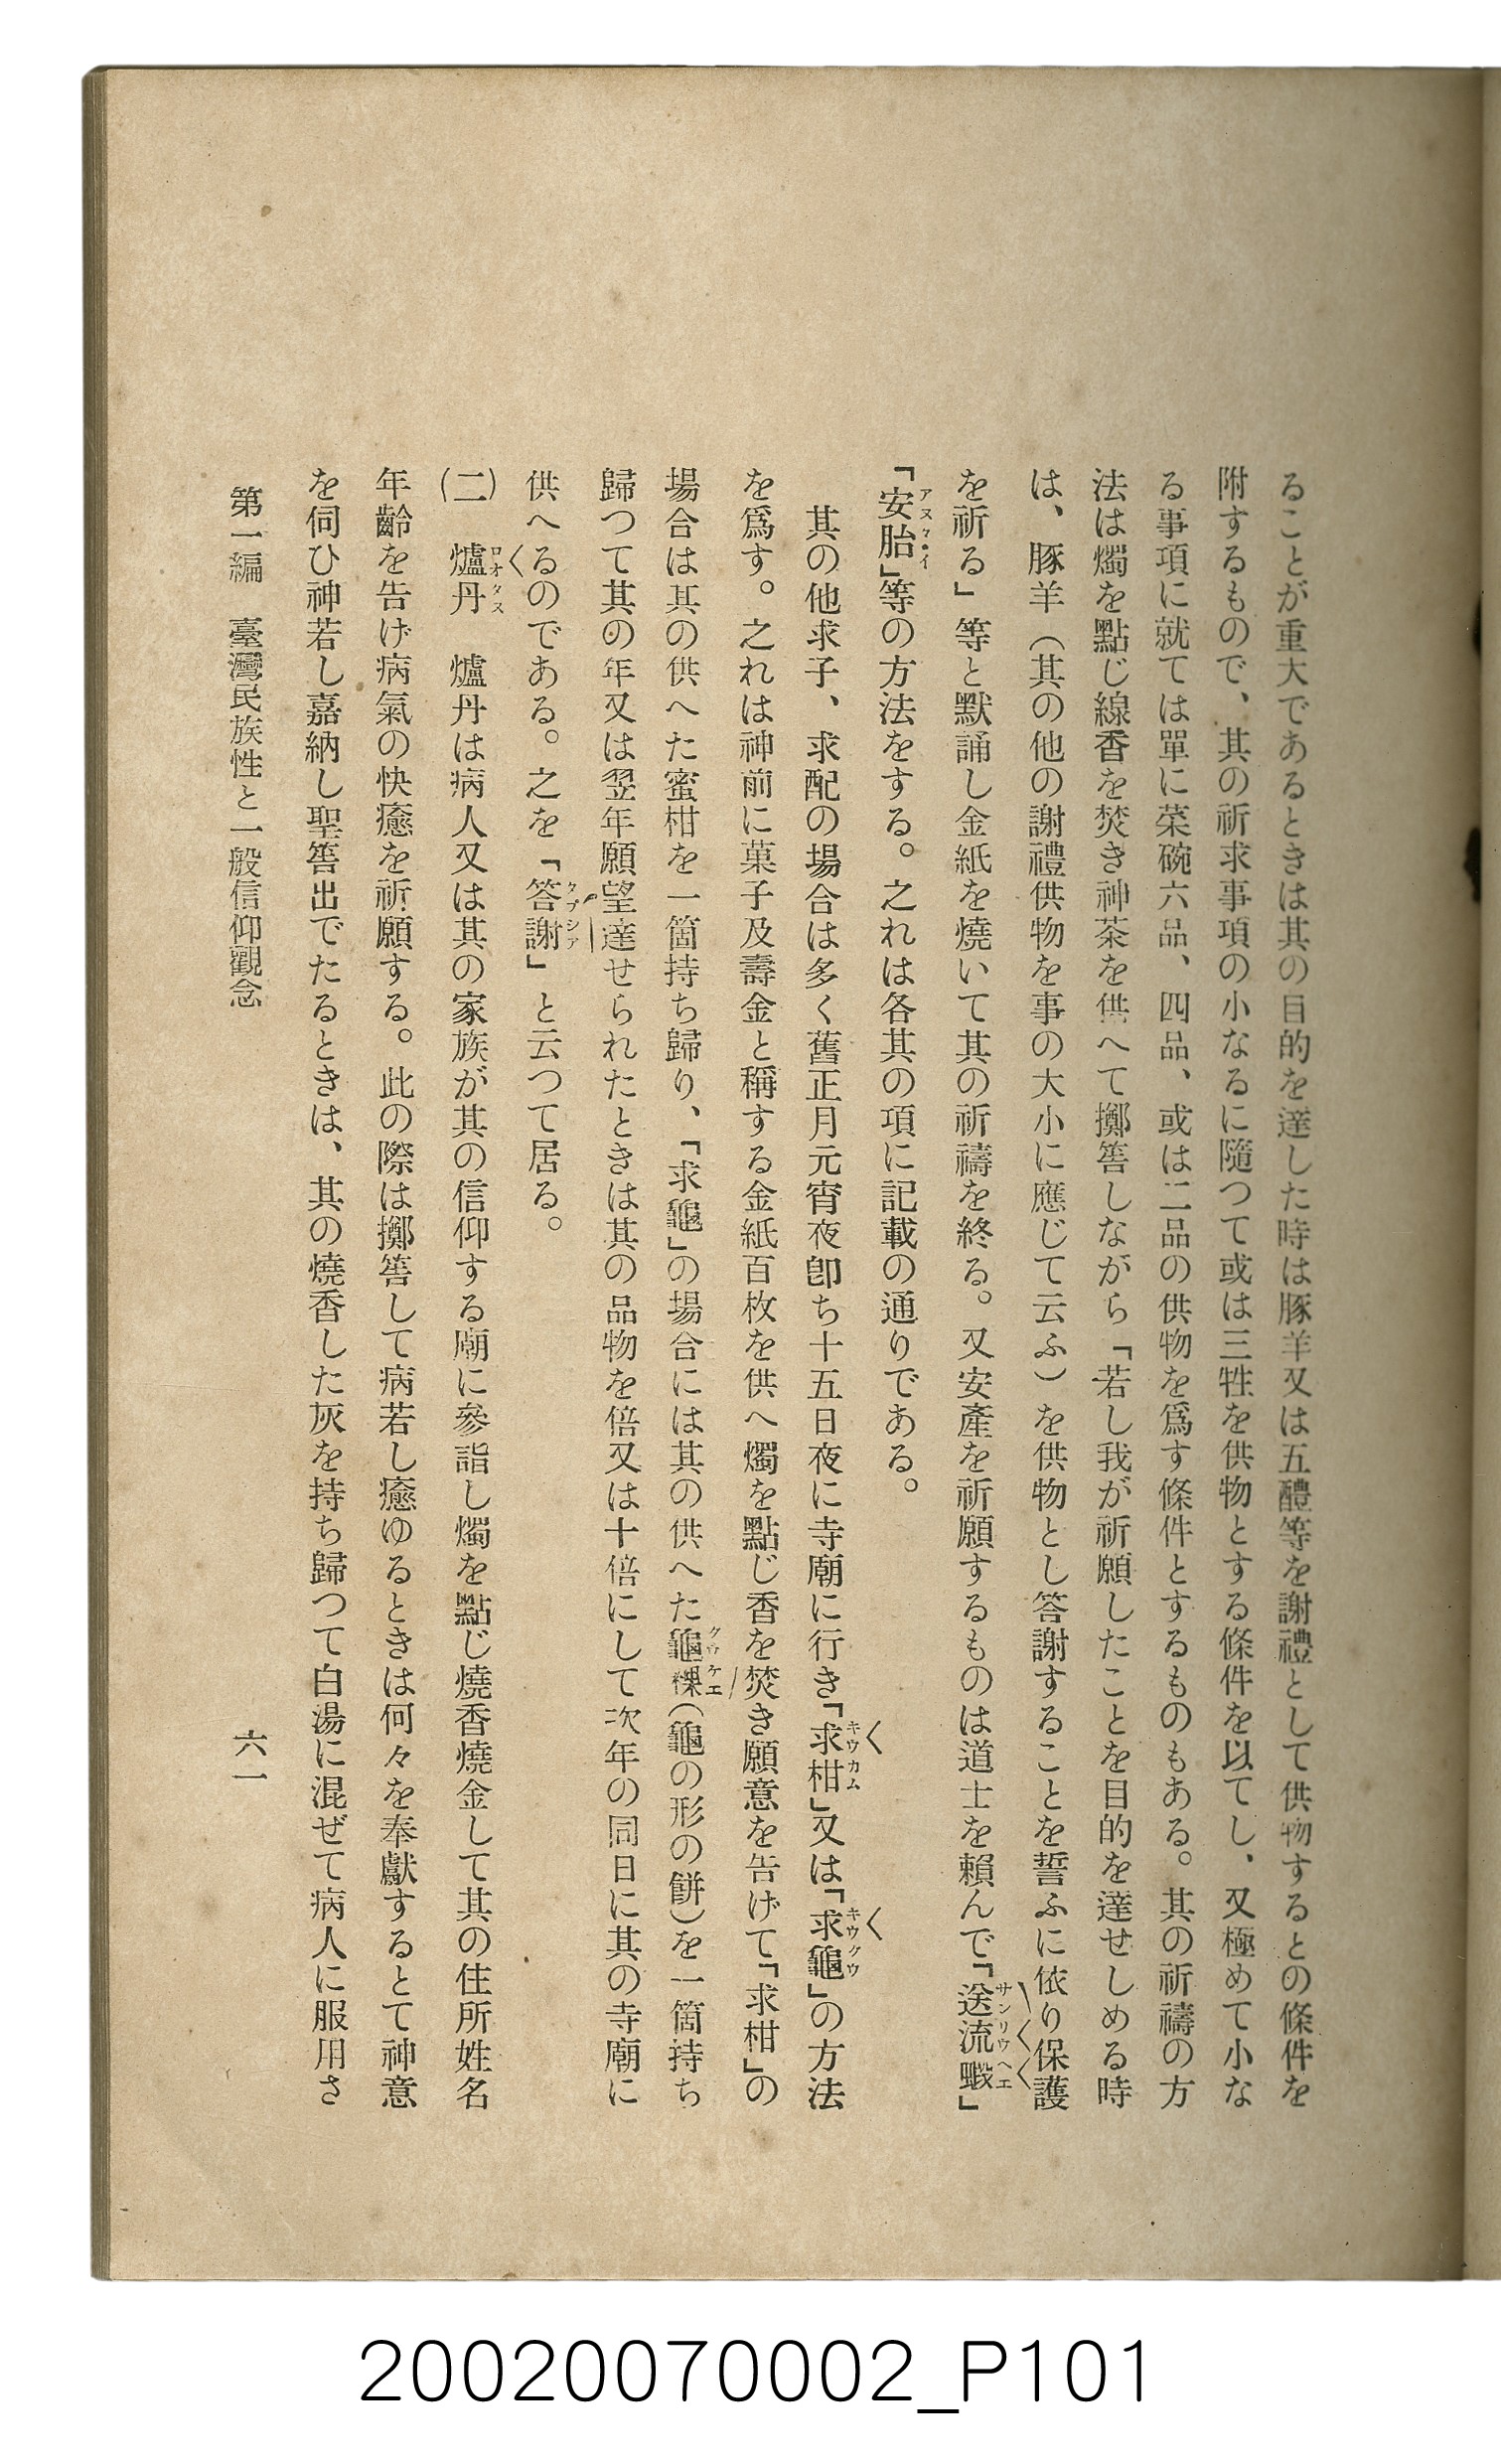 ることが重大であるときは其の目的を達した時は豚羊又は五醴等を謝禮として供物するとの條件を
附するもので、其の祈求事項の小なるに隨つて或は三牲を供物とする條件を以てし、又極めて小な
る事項に就ては單に菜碗六品、四品、或は二品の供物を爲す條件とするものもある。其の祈禱の方
法は燭を點じ線香を焚き神茶を供へて擲筶しながら「若し我が祈願したことを目的を達せしめる時
は、豚羊(其の他の謝禮供物を事の大小に應じて云ふ)を供物とし答謝することを誓ふに依り保護
を祈る」等と默誦し金紙を燒いて其の祈禱を終る。又安產を祈願するものは道士を賴んで「送流蝦」
「安胎」等の方法をする。之れは各其の項に記載の通りである。
其の他求子、求配の場合は多く舊正月元宵夜卽ち十五日夜に寺廟に行き「求柑」又は「求龜」の方法
を爲す。之れは神前に菓子及壽金と稱する金紙百枚を供へ燭を點じ香を焚き願意を告げて「求柑」の
場合は其の供へた蜜柑を一箇持ち歸り、「求龜」の場合には其の供へた龜粿(龜の形の餅)を一箇持ち
歸つて其の年又は翌年願望達せられたときは其の品物を倍又は十倍にして次年の同日に其の寺廟に
供へるのである。之を「答謝」と云つて居る。
(二) 爐丹 爐丹は病人又は其の家族が其の信仰する廟に參詣し燭を點じ燒香燒金して其の住所姓名
年齡を告げ病氣の快癒を祈願する。此の際は擲筶して病若し癒ゆるときは何々を奉獻するとて神意
を伺ひ神若し嘉納し聖筶出でたるときは、其の燒香した灰を持ち歸つて白湯に混ぜて病人に服用さ
第一編 臺灣民族性と一般信仰觀念
六一
20020070002_P101